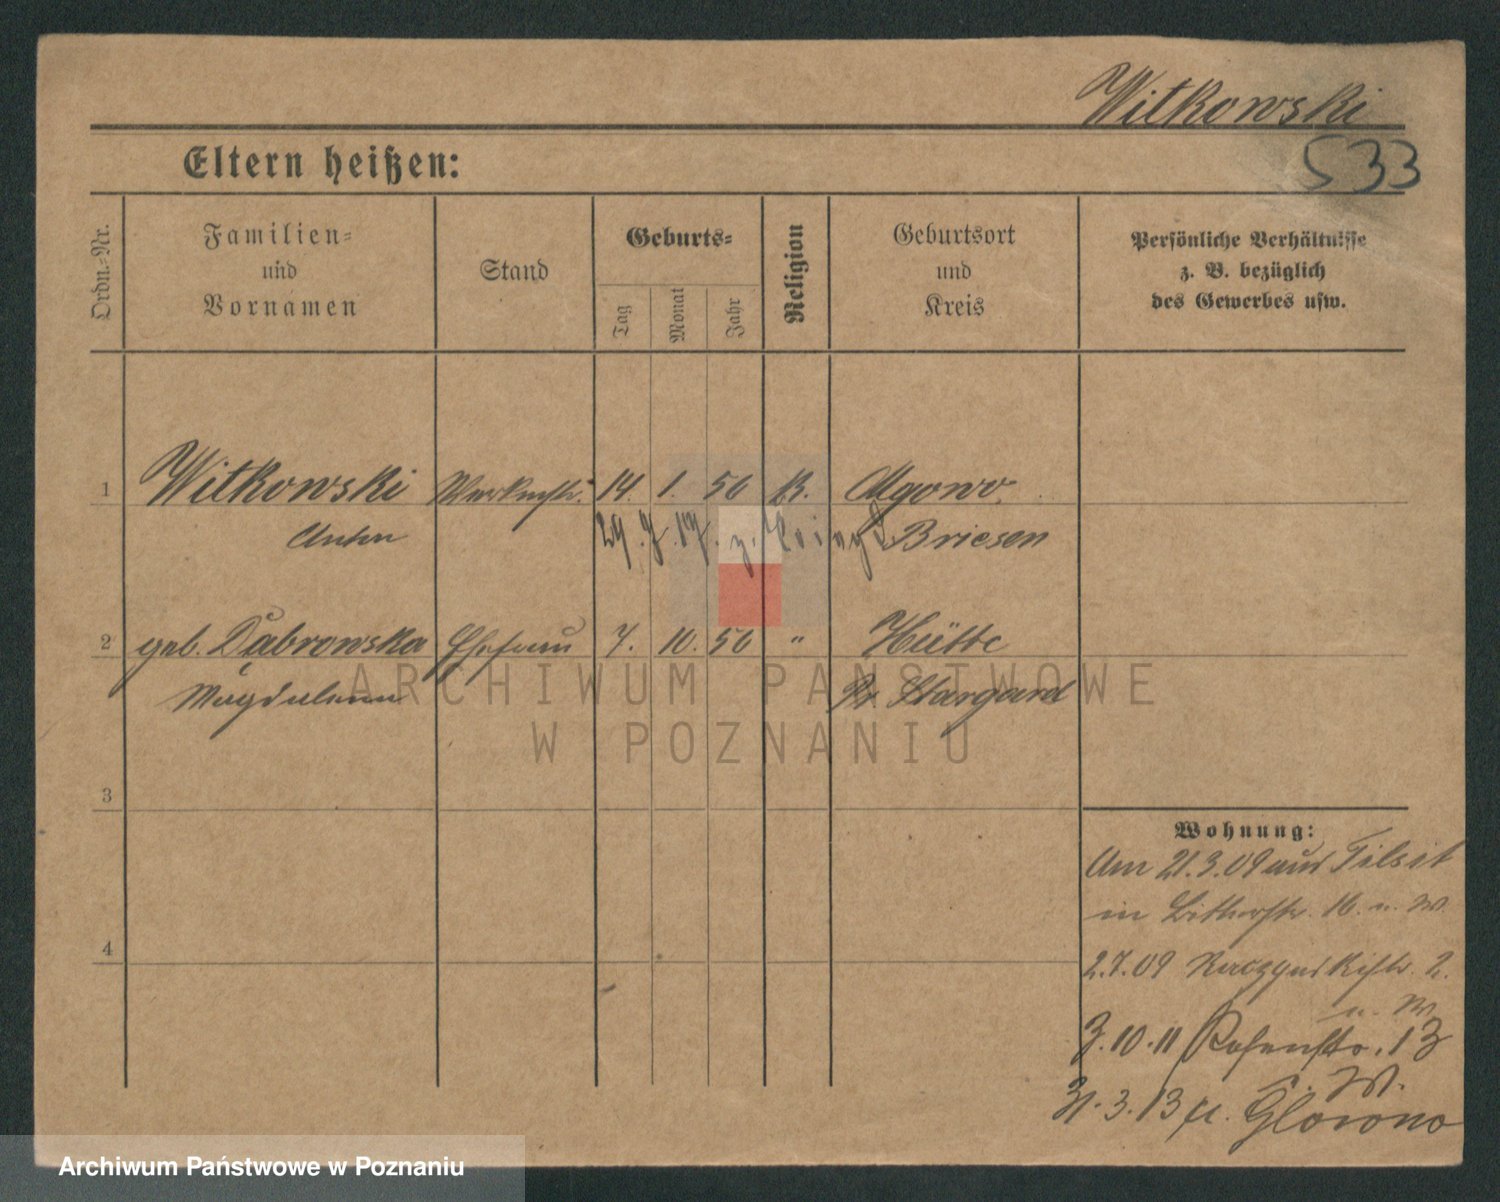 Witkowski
533
Eltern heißen:
Ordn.-Nr.
Familien-
und
Vornamen
Stand
Geburts-
Tag
Monat
Jahr
Religion
Geburtsort
und
Kreis
Persönliche Verhältnisse
z. B. bezüglich
des Gewerbes usw.
1 Witkowski 14. 1. 50 K.
Anton
29. 7. 17. z. Briesen
2 geb. Dąbrowska Ehefrau 7. 10. 50 " Hütte
Magdalena Pr. Stargard
ARCHIWUM PAŃSTWOWE
W POZNANIU
3
4
Wohnung:
Am 21.3.09 aus Tilsit
in 16. u. W.
2.7.09 2.
u. W.
3.10.11 Rosenstr. 13
W.
31.3.13 n. Glowno
Archiwum Państwowe w Poznaniu